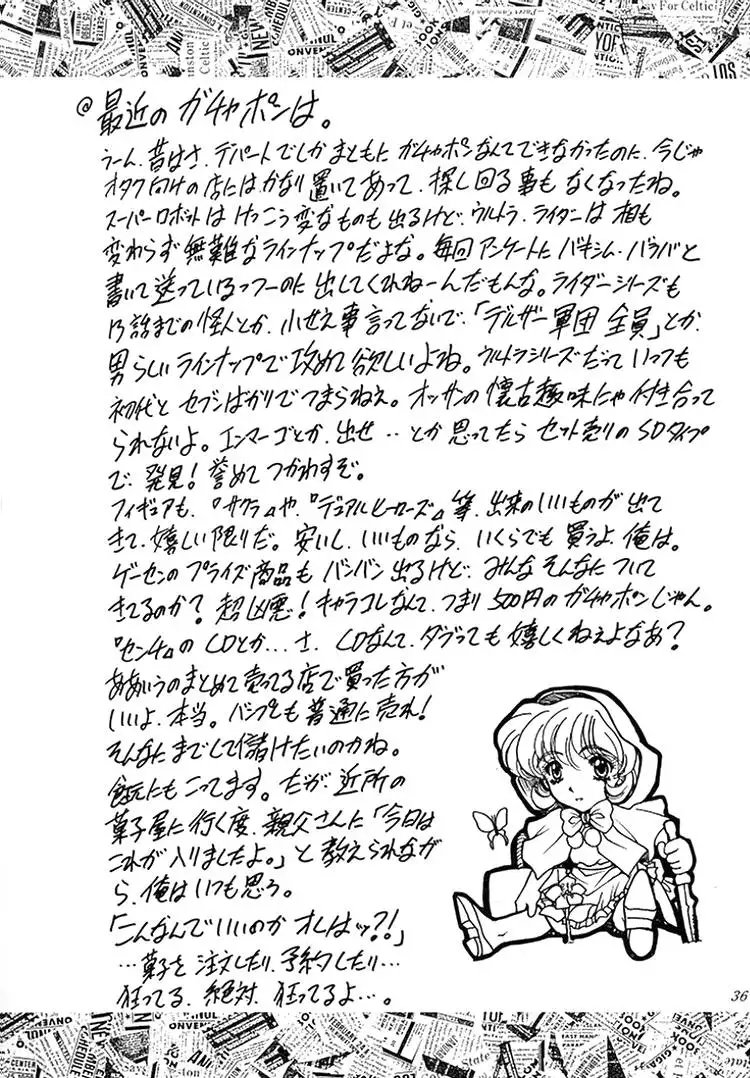 @最近のガチャポンは。
うーん、昔はさ、デパートでしかまともにガチャポンなんてできなかったのに、今じゃ
オタク向けの店にはかなり置いてあって、探し回る事もなくなったね。
スーパーロボットはけっこう変なものも出るけど、ウルトラ、ライダーは相も
変わらず無難なラインナップだよな。毎回アンケートにバキシム・バラバと
書いて送っているっつーのに出してくれねーんだもんな。ライダーシリーズも
13話までの怪人とか、小せえ事言ってないで、「デルザー軍団全員」とか、
男らしいラインナップで攻めて欲しいよね。ウルトラシリーズだっていっつも
初代とセブンばかりでつまらねえ。オッサンの懐古趣味にゃ付き合って
られないよ。エンマーゴとか、出せ‥とか思ってたらセット売りのSDタイプ
で、発見!誉めてつかわすぞ。
フィギュアも、『サクラ』や、『デュアルヒーローズ』等、出来のいいものが出て
きて、嬉しい限りだ。安いし、いいものなら、いくらでも買うよ、俺は。
ゲーセンのプライズ商品もバンバン出るけど、みんなそんなについて
きてるのか?超凶悪!キャラコレなんて、つまり500円のガチャポンじゃん。
『センチ』のCDとか…さ、CDなんて、ダブっても嬉しくねえよなあ?
ああいうのまとめて売ってる店で買った方が
いいよ、本当。バンプレも普通に売れ!
そんなにまでして儲けたいのかね。
食玩にもこってます。だが、近所の
菓子屋に行く度、親父さんに「今日は
これが入りましたよ。」と教えられなが
ら、俺はいつも思う。
「こんなんでいいのかオレはッ?!」
…菓子を注文したり、予約したり…
狂ってる、絶対、狂ってるよ…。
36